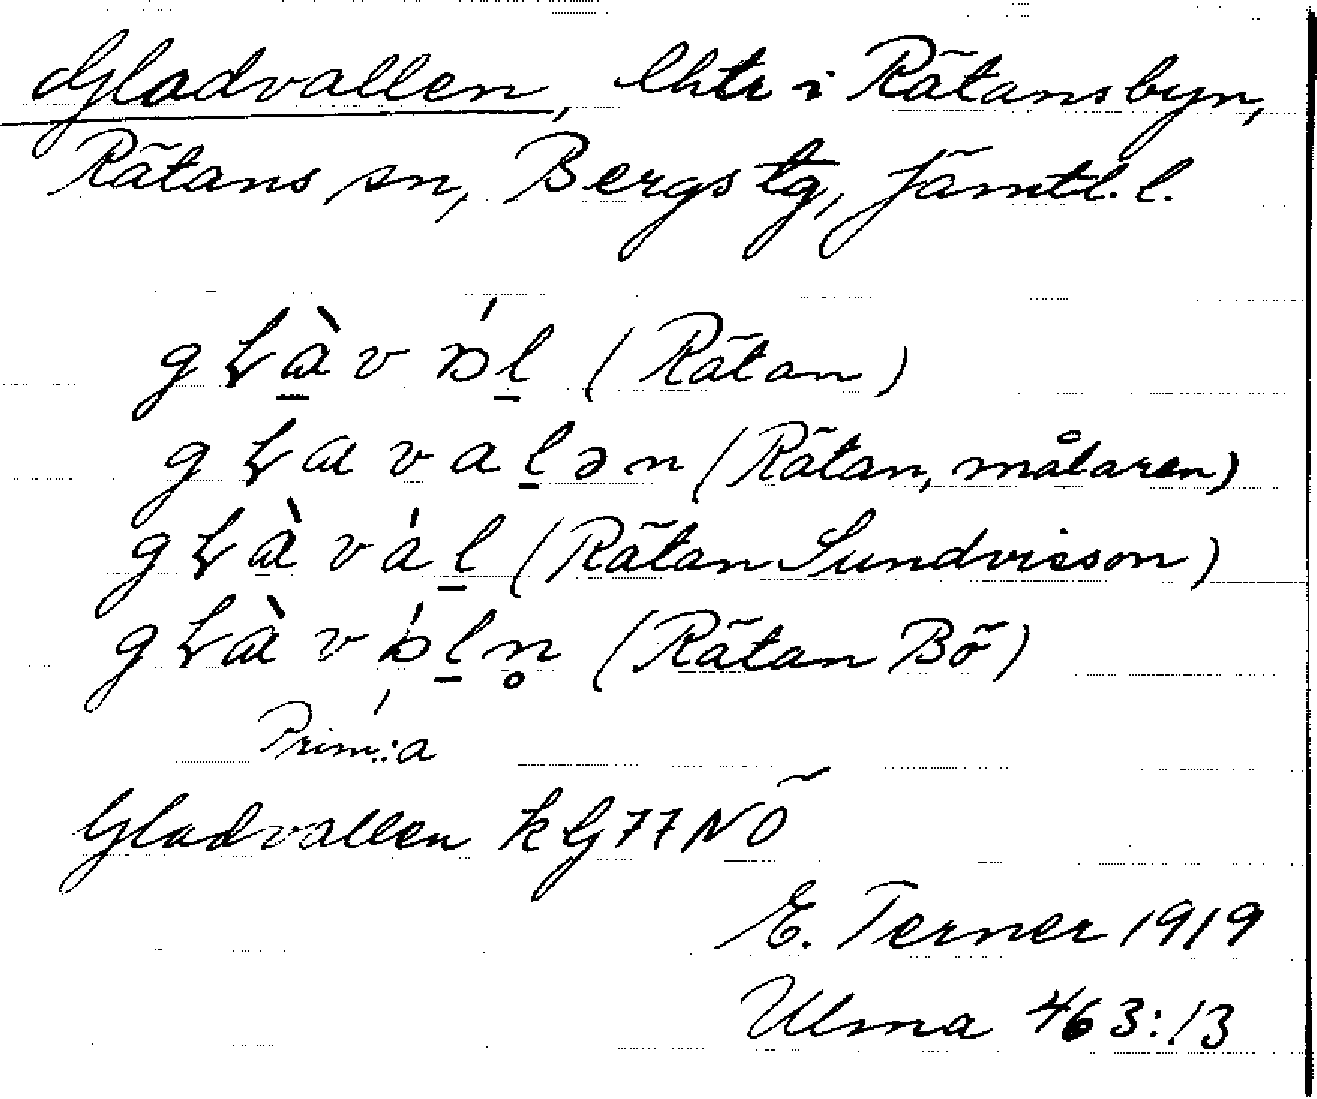 Gladvallen, lhtr i Rätansbyn,
Rätans sn, Bergs tg, Jämtl. l.
gɫɑ̀vɒ́l̠ (Rätan)
gɫɑval̠ən (Rätan, målaren)
gɫɑ̀vál̠ (Rätan Sundvisson)
gɫɑ̀vɒ́l̠n̥ (Rätan Bö)
Prim.: a
Gladvallen k G77NÖ
E. Terner 1919
Ulma 463:13